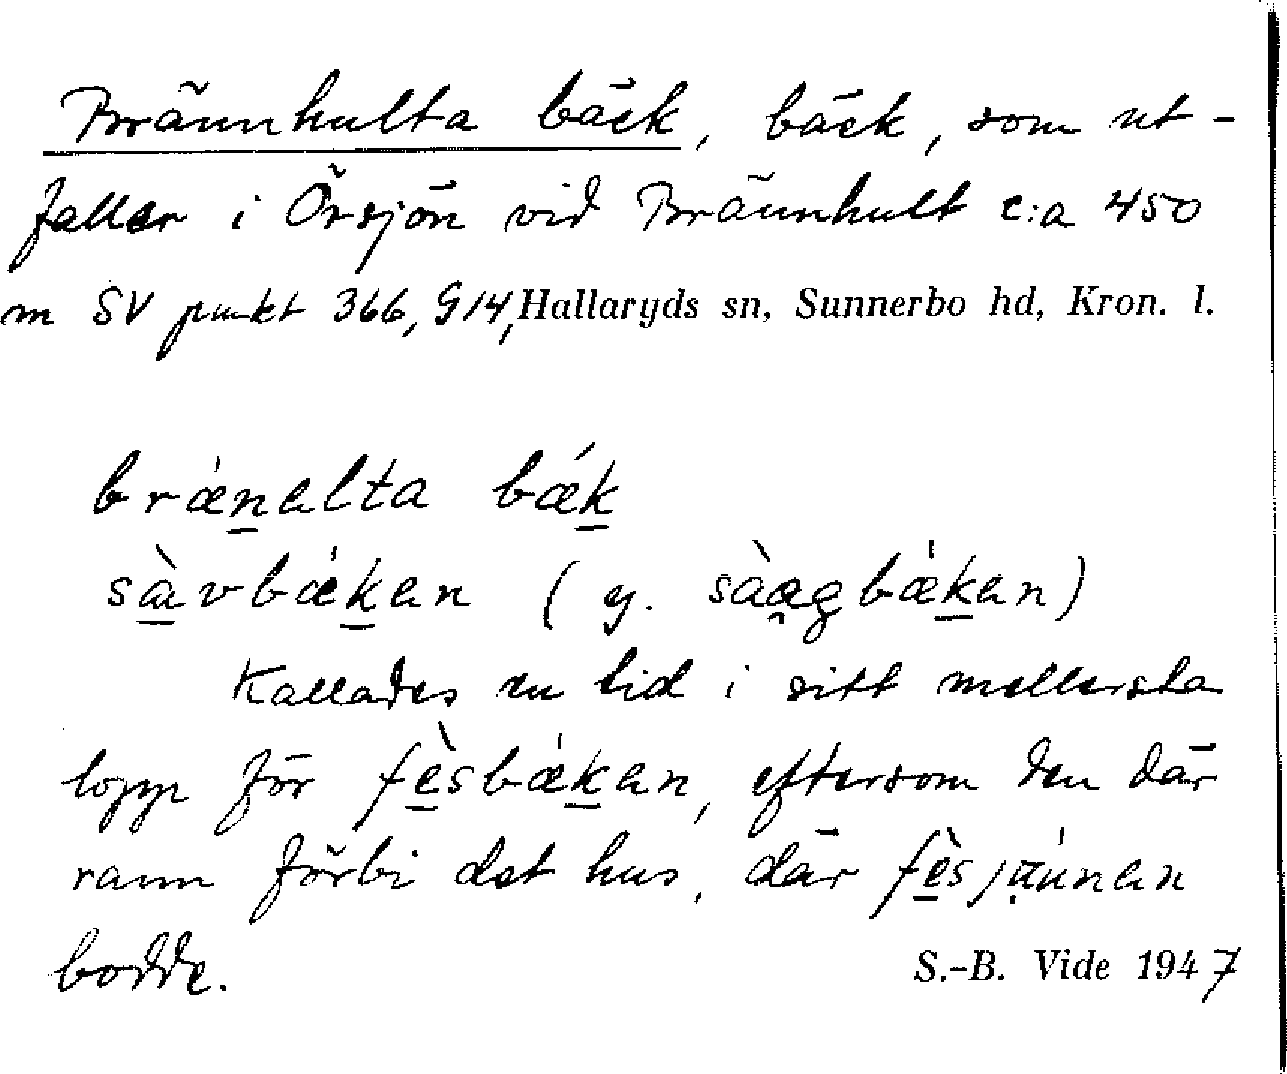 Brännhulta bäck, bäck, som ut-
faller i Örsjön vid Brännhult c:a 450
m SV punkt 366, G14, Hallaryds sn, Sunnerbo hd, Kron. l.
bræ̀nalta bǽk
sàvbækan (y. sàagbækan)
Kallades en tid i sitt mellersta
lopp för fèsbækan, eftersom den där
rann förbi det hus, där
bodde.
S.-B. Vide 1947